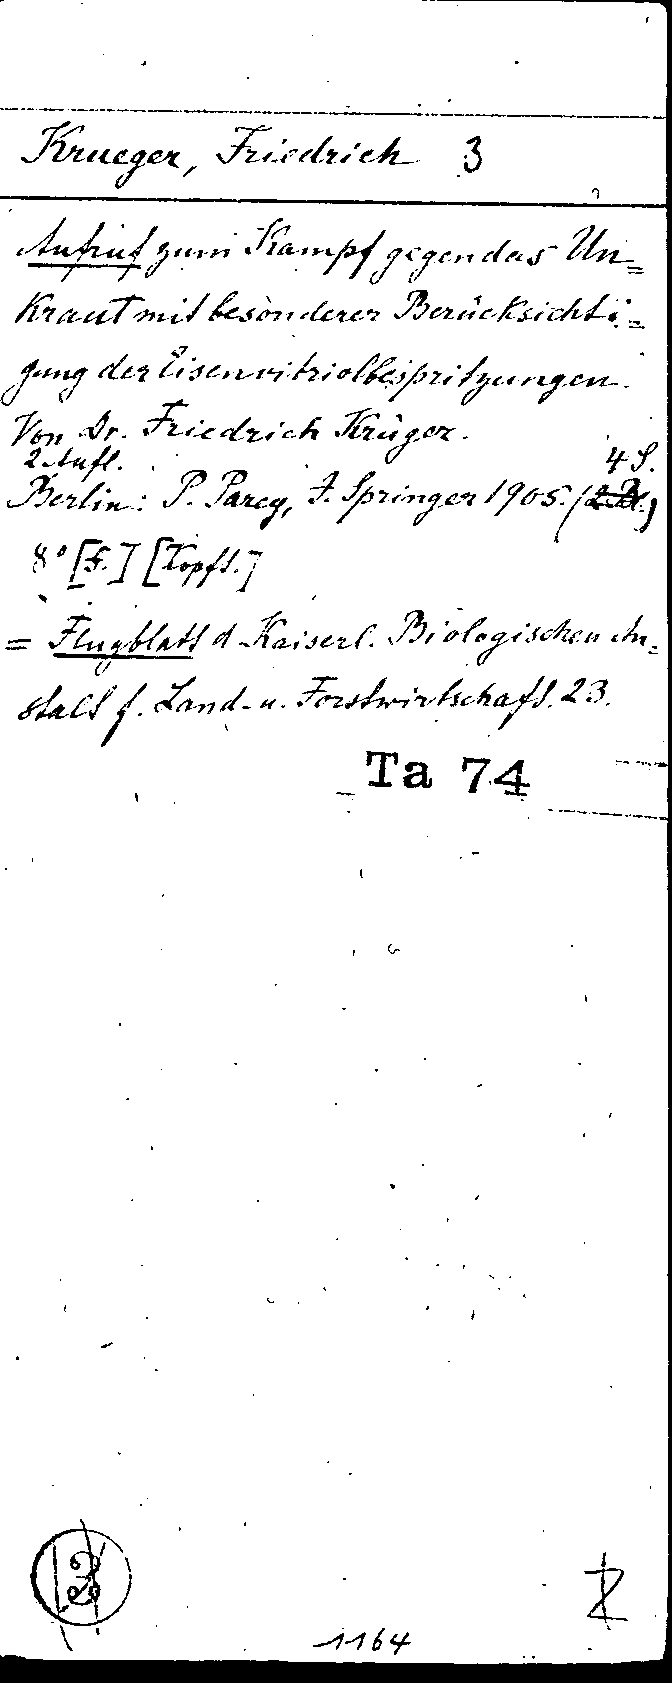 Krueger, Friedrich 3
Aufruf zum Kampf gegen das Un=
kraut mit besonderer Berücksichti=
gung der Eisenvitriolbespritzungen.
Von Dr. Friedrich Krüger.
2. Aufl. 4 S.
Berlin: P. Parey, J. Springer 1905. (2 Bl.)
8° [F.] [Kopft.]
= Flugblatt d. Kaiserl. Biologischen An=
stalt f. Land- u. Forstwirtschaft. 23.
Ta 74
3
1164